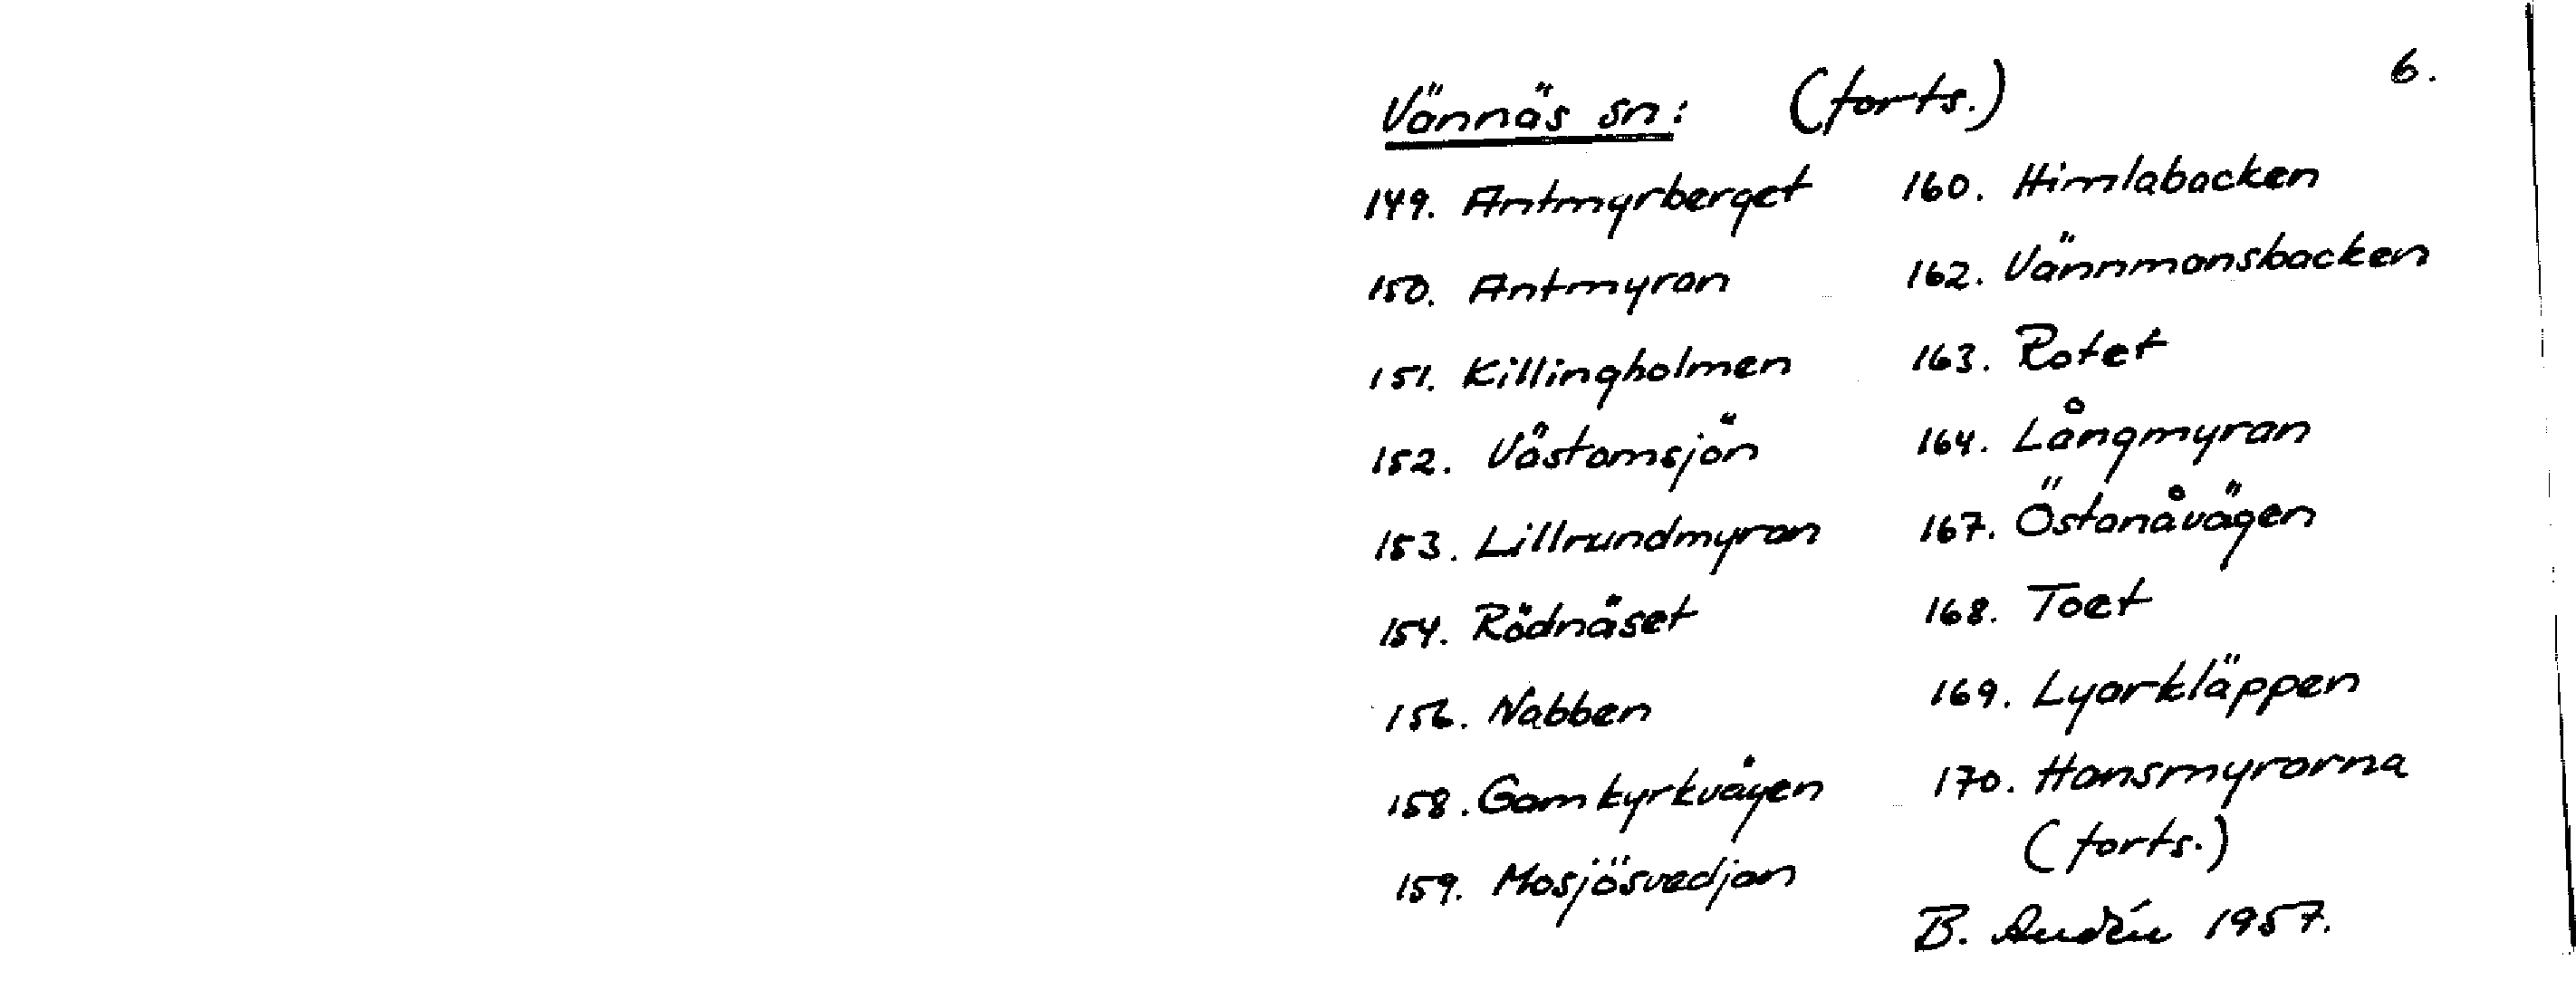 6.
Vännäs sn: (forts.)
149. Antmyrberget
150. Antmyran
151. Killingholmen
152. Västamsjön
153. Lillrundmyran
154. Rödnäset
156. Nabben
158. Gamkyrkvägen
159. Mosjösvedjan
160. Himlabacken
162. Vännmansbacken
163. Rotet
164. Långmyran
167. Östanåvägen
168. Toet
169. Lyarkläppen
170. Hansmyrorna
(forts.)
B. Audén 1957.